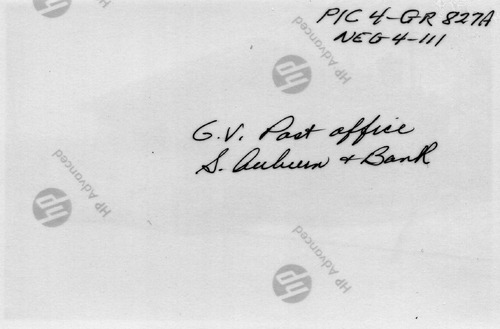 PIC 4-GR 827A
NEG 4-111
G.V. Post office
S. Auburn + Bank
hp HP Advanced
hp HP Advanced
hp HP Advanced